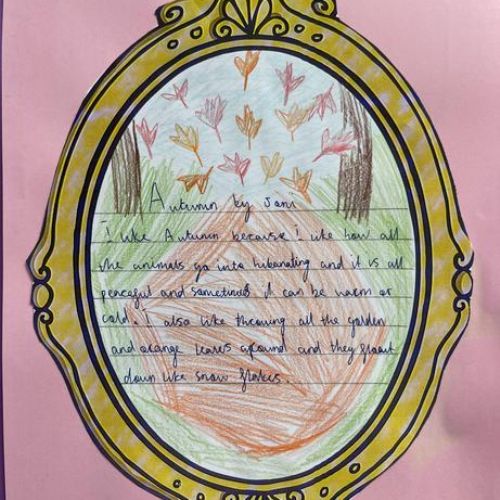 Autumn by Jani
I like Autumn because I like how all
the animals go into hibanating and it is all
peaceful and sometimes it can be warm or
cold. I also like throwing all the golden
and orange leaves around and they float
down like snow flakes.